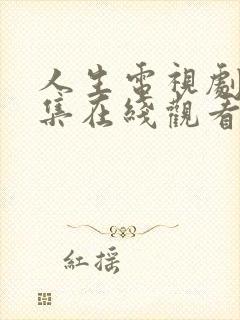 人生電視劇
集在綫觀看
紅摇